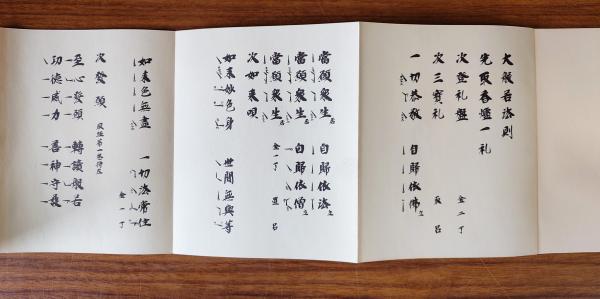 大般若法則
先取香爐一礼
次登礼盤 金二丁
次三寳礼 取呂
一切恭敬 自歸依佛
當願衆生 自歸依法
當願衆生 自歸依僧
當願衆生 金一丁 置呂
次如来唄
如来妙色身 世間無與等
如来色無盡 一切法常住
金一丁
次發願
至心發願 轉讀般若
功德威力 善神守護